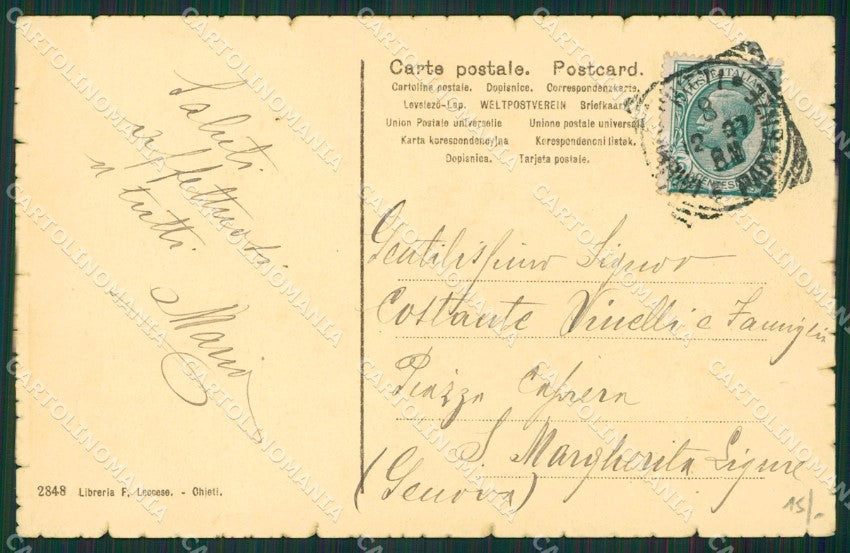 Saluti
affettuosi
a tutti
Mario
Carte postale. Postcard.
Cartoline postale. Dopisnice. Correspondenzkarte.
Levelezö-Lap. WELTPOSTVEREIN Briefkaart
Union Postale universelle Unione postale universale
Karta korespondencyjna Korespondencni listek.
Dopisnica. Tarjeta postale.
Gentilissimo Signor
Costante Vinelli e Famiglia
Piazza Caprera
S. Margherita Ligure
(Genova)
2848 Libreria F. Leccese. - Chieti.
15/-
CARTOLINOMANIA